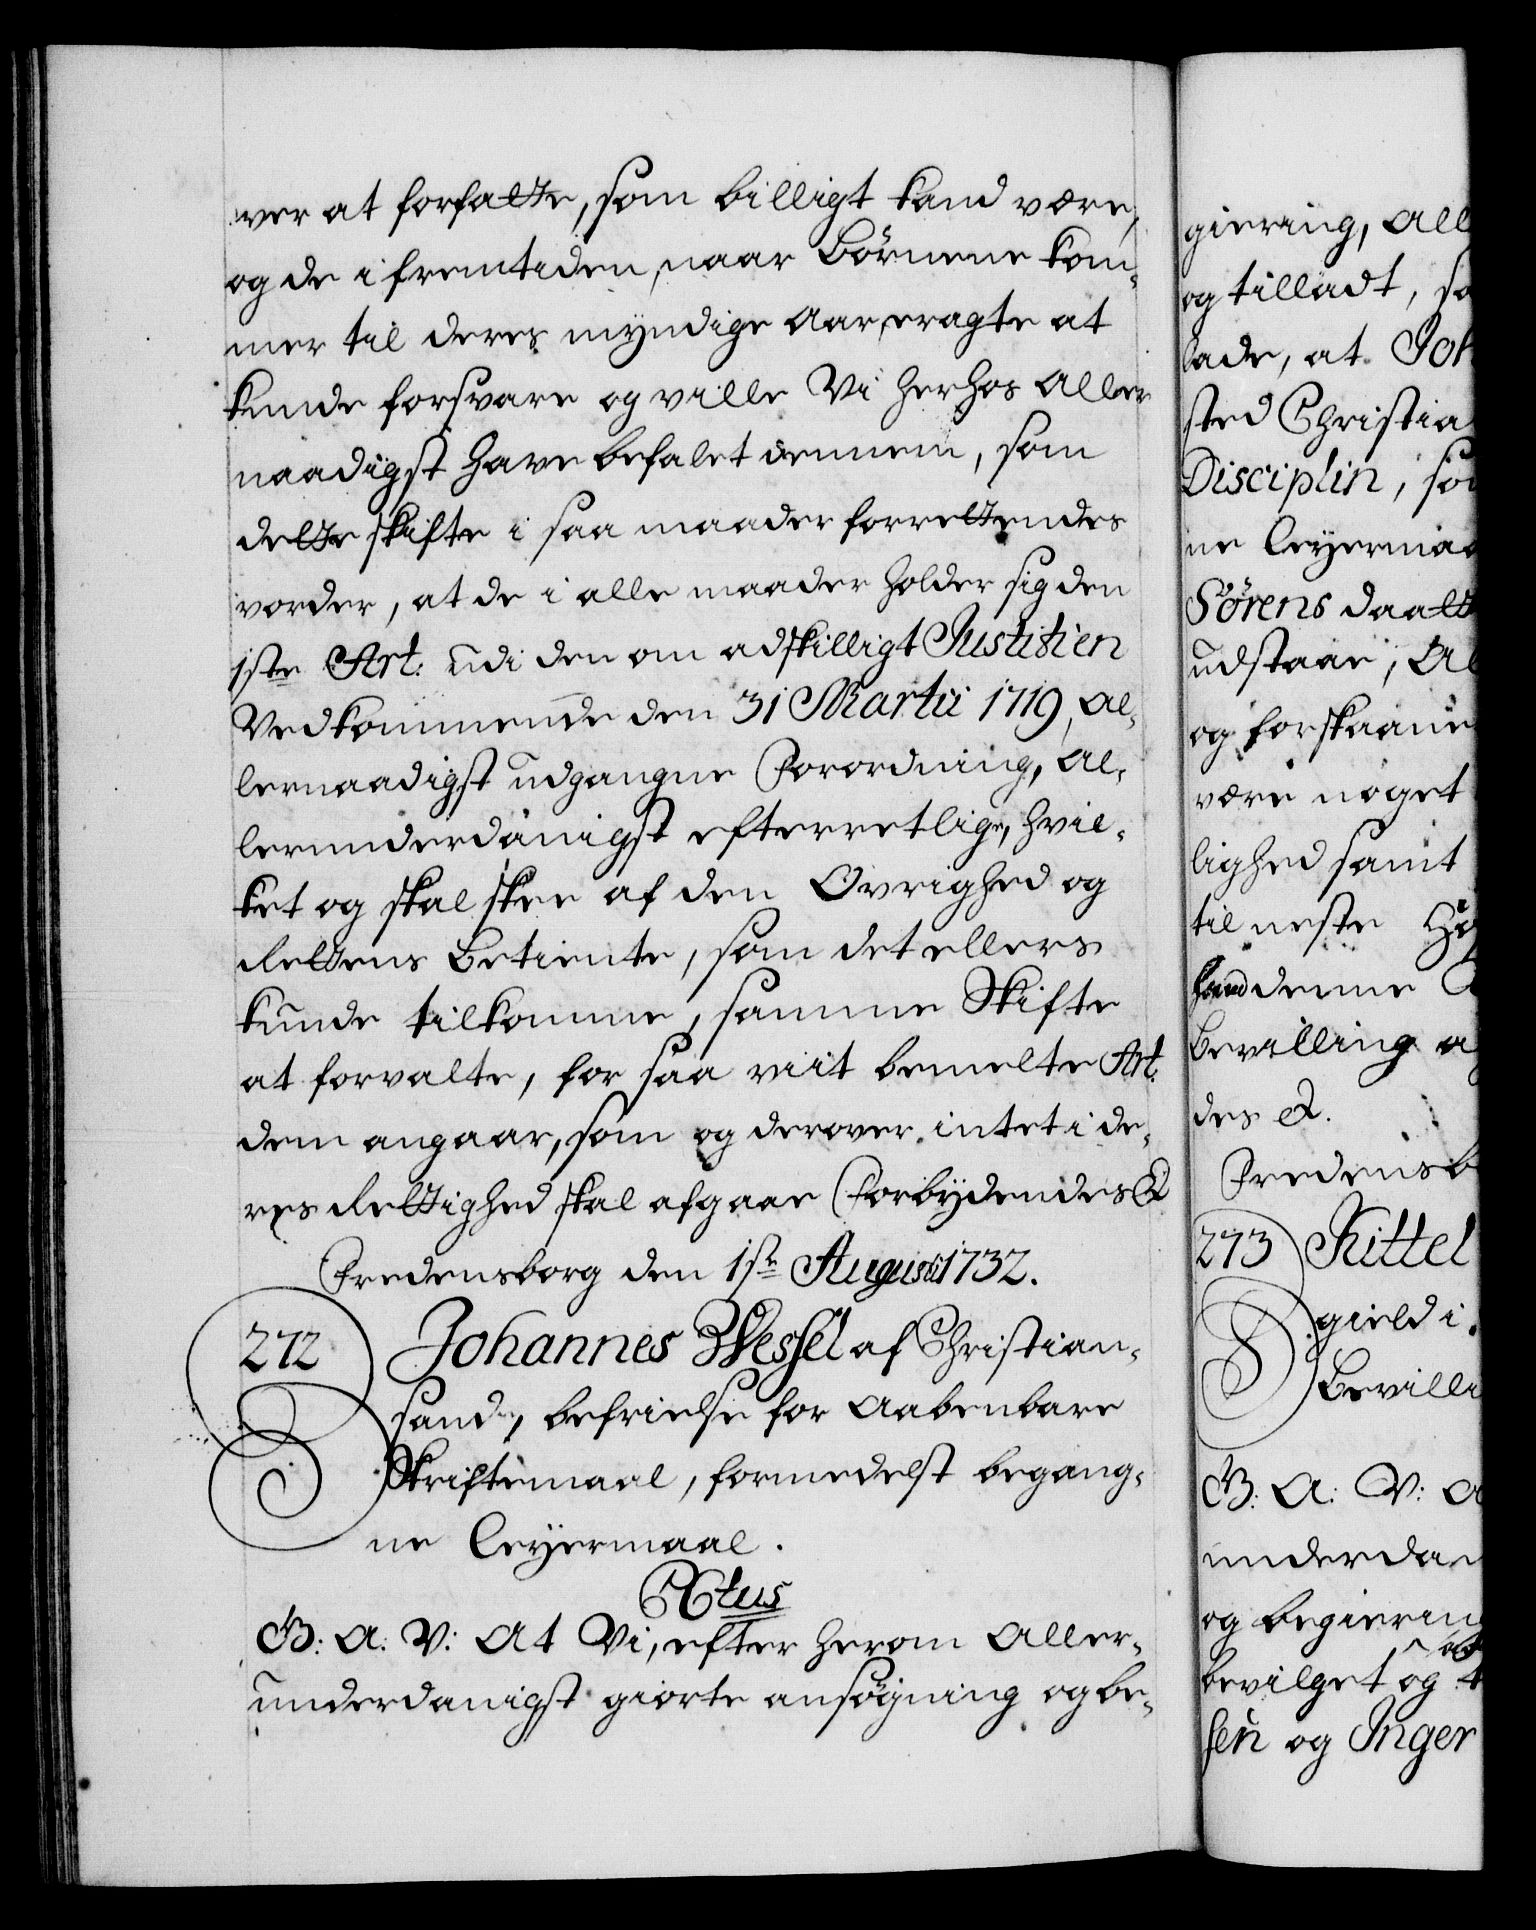 ver at forfatte, som billigt kand være,
og de i fremtiden, naar Börnene kom¬
mer til deres myndige Aar, eragte at
kunde forsvare og ville Vi herhos Aller
naadigst have befalet dennem, som
dette skifte i saa maader forrettendes
vorder, at de i alle maader holder sig den
1ste Art: udi den om adskilligt Justitien
Vedkommende den 31 Martii 1719, Al¬
lernaadigst udgangne Forordning, Al¬
lerunderdanigst efterretlige, hvil¬
ket og skal skee af den Øvrighed og
Rettens Betiente, som det ellers
kunde tilkomme, samme Skifte
at forvalte, for saa viit bemelte Art.
dem angaar, som og derover intet i de¬
res Rettighed skal afgaae Forbydendes &
Fredensborg den 1ste Augusti 1732.
272 Johannes Wessel af Christian¬
sand, befrielse for Aabenbare
Skriftemaal, formedelst begang¬
ne Leyermaal.
Actus
G: A: V: At Vi, efter herom Aller¬
underdanigst giorte ansögning og be¬
giering, All
og tilladt, so
lade, at Joh
sted Christia
Disciplin, so
ne Leyermaa
Sörens daatt
udstaae, Al
og forskaane
være noget
lighed samt
til neste Hö
hand denne
Bevilling a
des &.
Fredensb
273 Kittel
gield i
Bevilli
G: A: V: A
underdan
og begiering
bevilget og t
sen og Inger